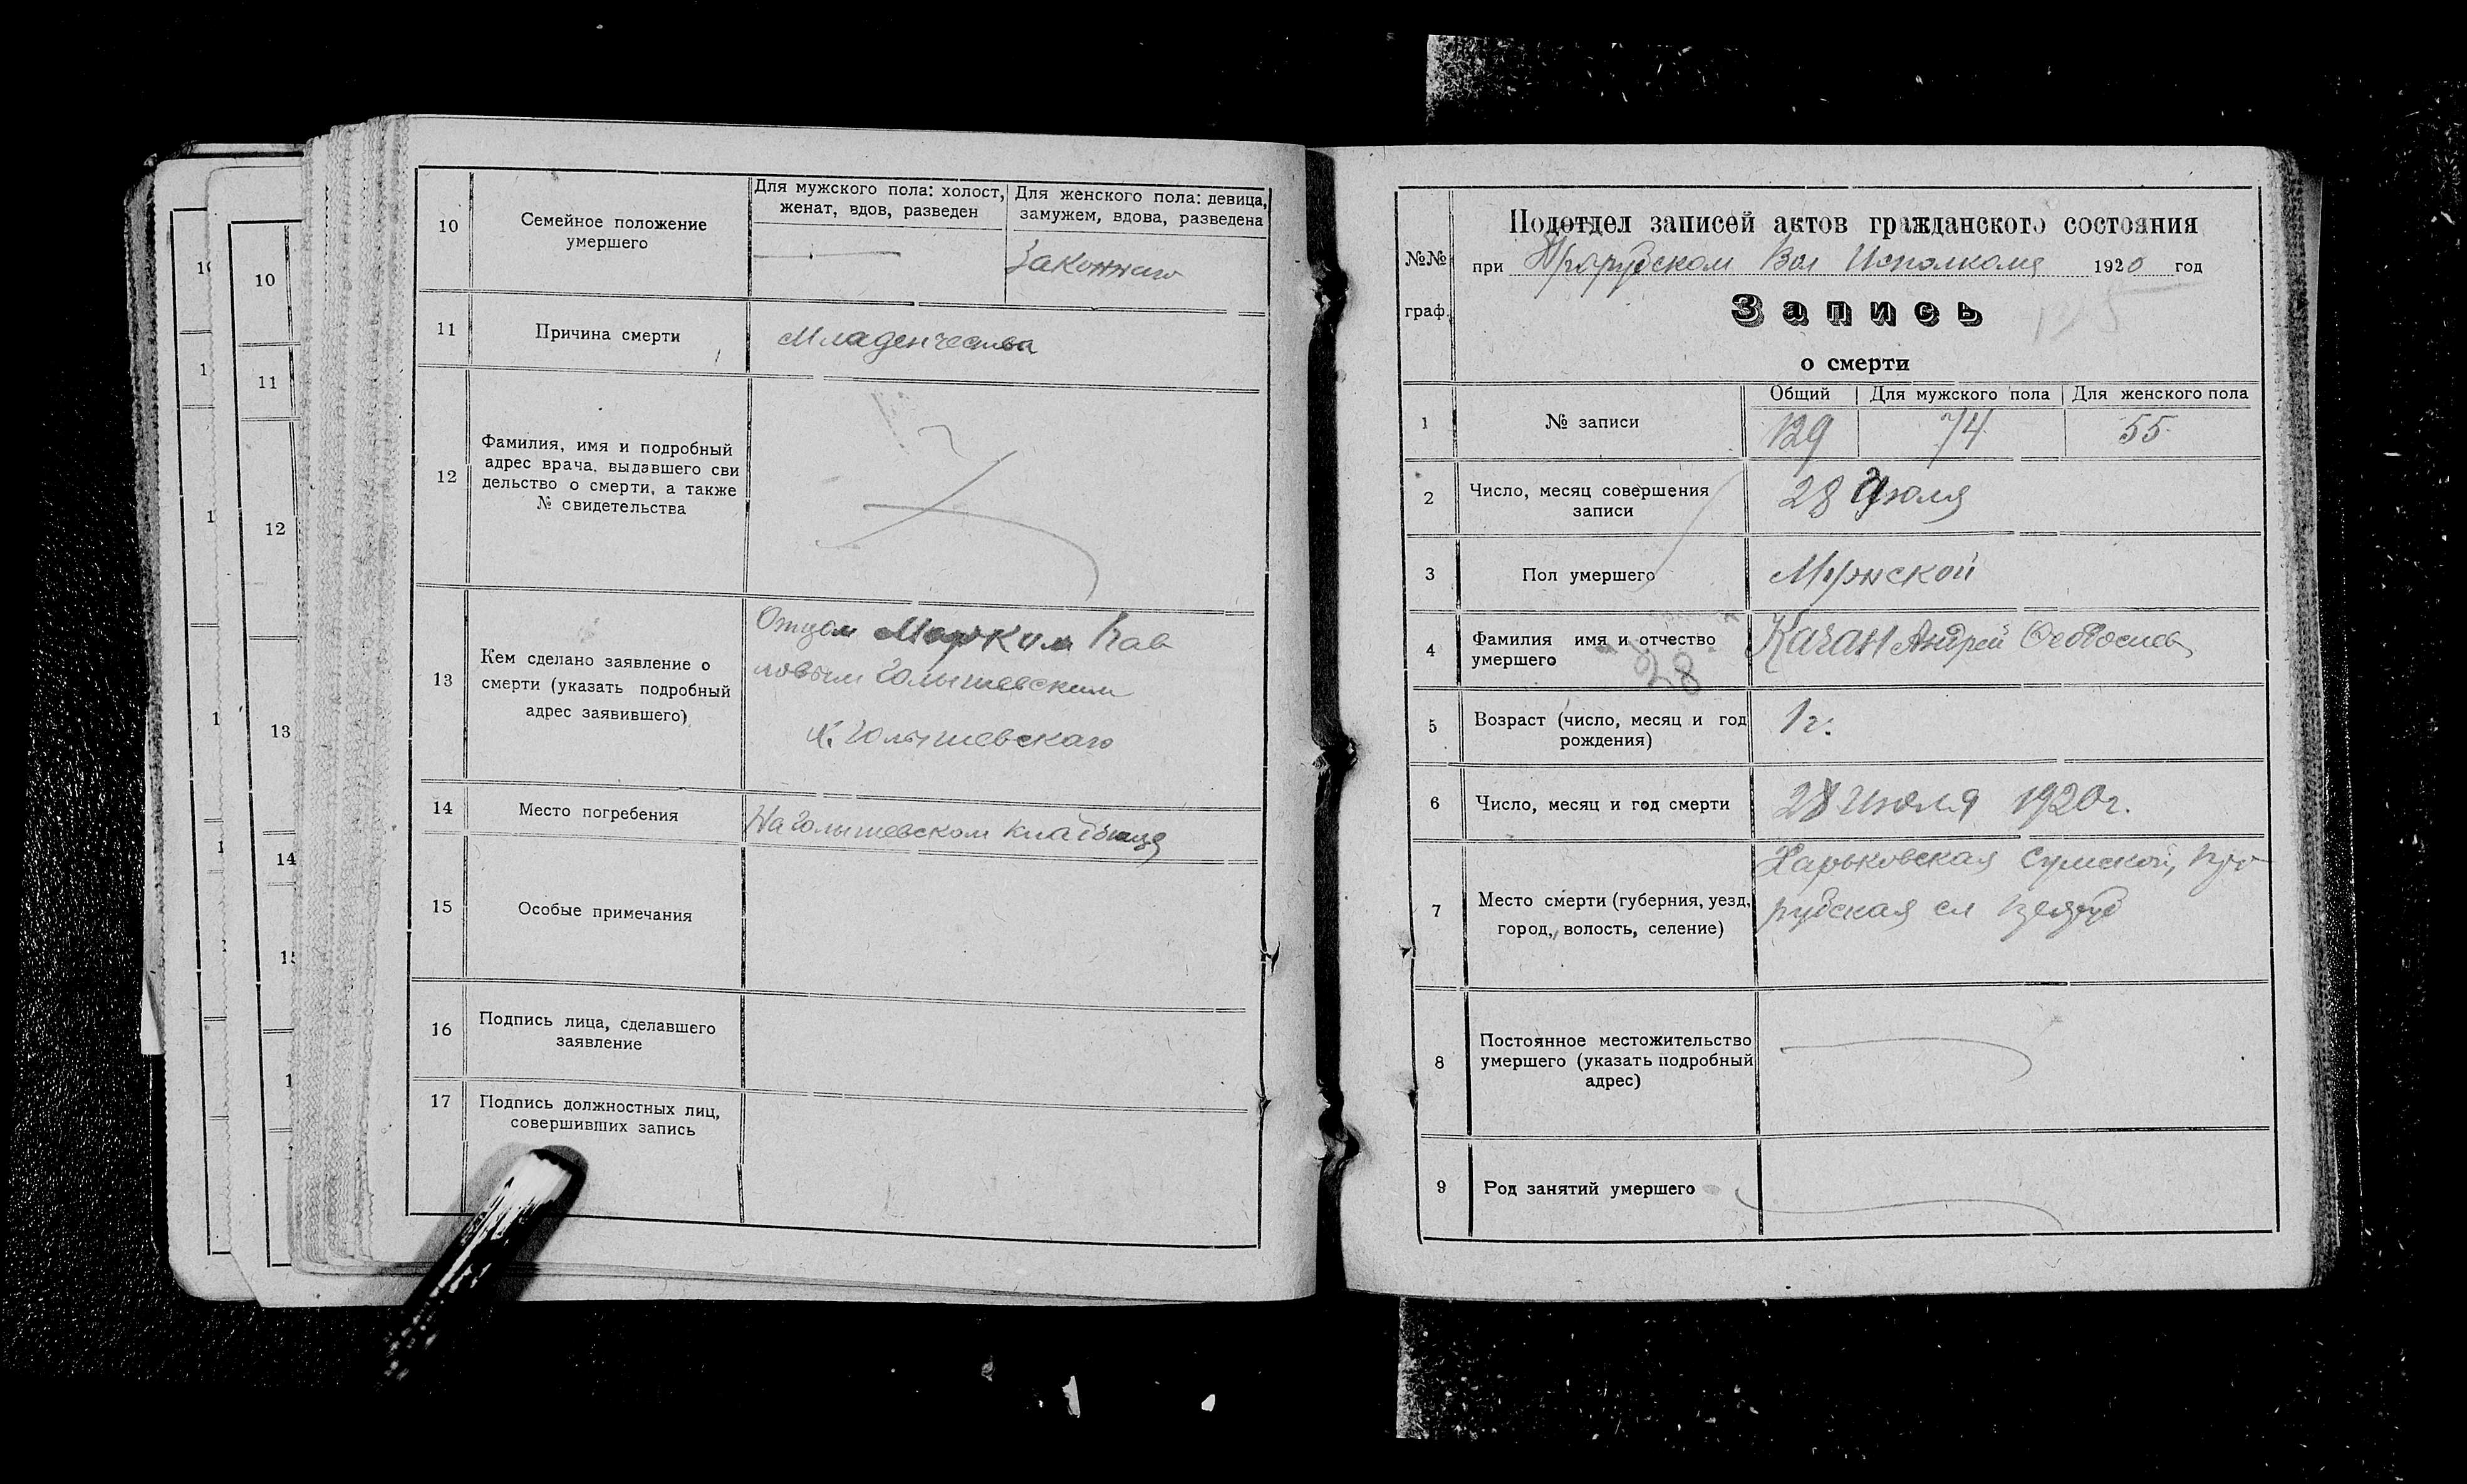 10
Семейное положение
умершего
Для мужского пола: холост,
женат, вдов, разведен
Для женского пола: девица,
замужем, вдова, разведена
Законнаго
11
Причина смерти
Младенчества
12
Фамилия, имя и подробный
адрес врача, выдавшего сви
дельство о смерти, а также
№ свидетельства
13
Кем сделано заявление о
смерти (указать подробный
адрес заявившего)
Отцом Марком Пав
ловым Голышевским
х. Голышевскаго
14
Место погребения
На Голышевском кладбище
15
Особые примечания
16
Подпись лица, сделавшего
заявление
17
Подпись должностных лиц,
совершивших запись
10
11
12
13
14
№№
граф.
Подотдел записей актов гражданского состояния
при Прорубском Вол Исполкоме 1920 год
Запись
о смерти
1
№ записи
Общий
Для мужского пола
Для женского пола
129
74
55
2
Число, месяц совершения
записи
28 Июля
3
Пол умершего
Мужской
4
Фамилия имя и отчество
умершего
28
Качан Андрей Феодосиев
5
Возраст (число, месяц и год
рождения)
1 г.
6
Число, месяц и год смерти
28 Июля 1920 г.
7
Место смерти (губерния, уезд,
город, волость, селение)
Харьковская Сумской, Про
рубская сл
8
Постоянное местожительство
умершего (указать подробный
адрес)
9
Род занятий умершего